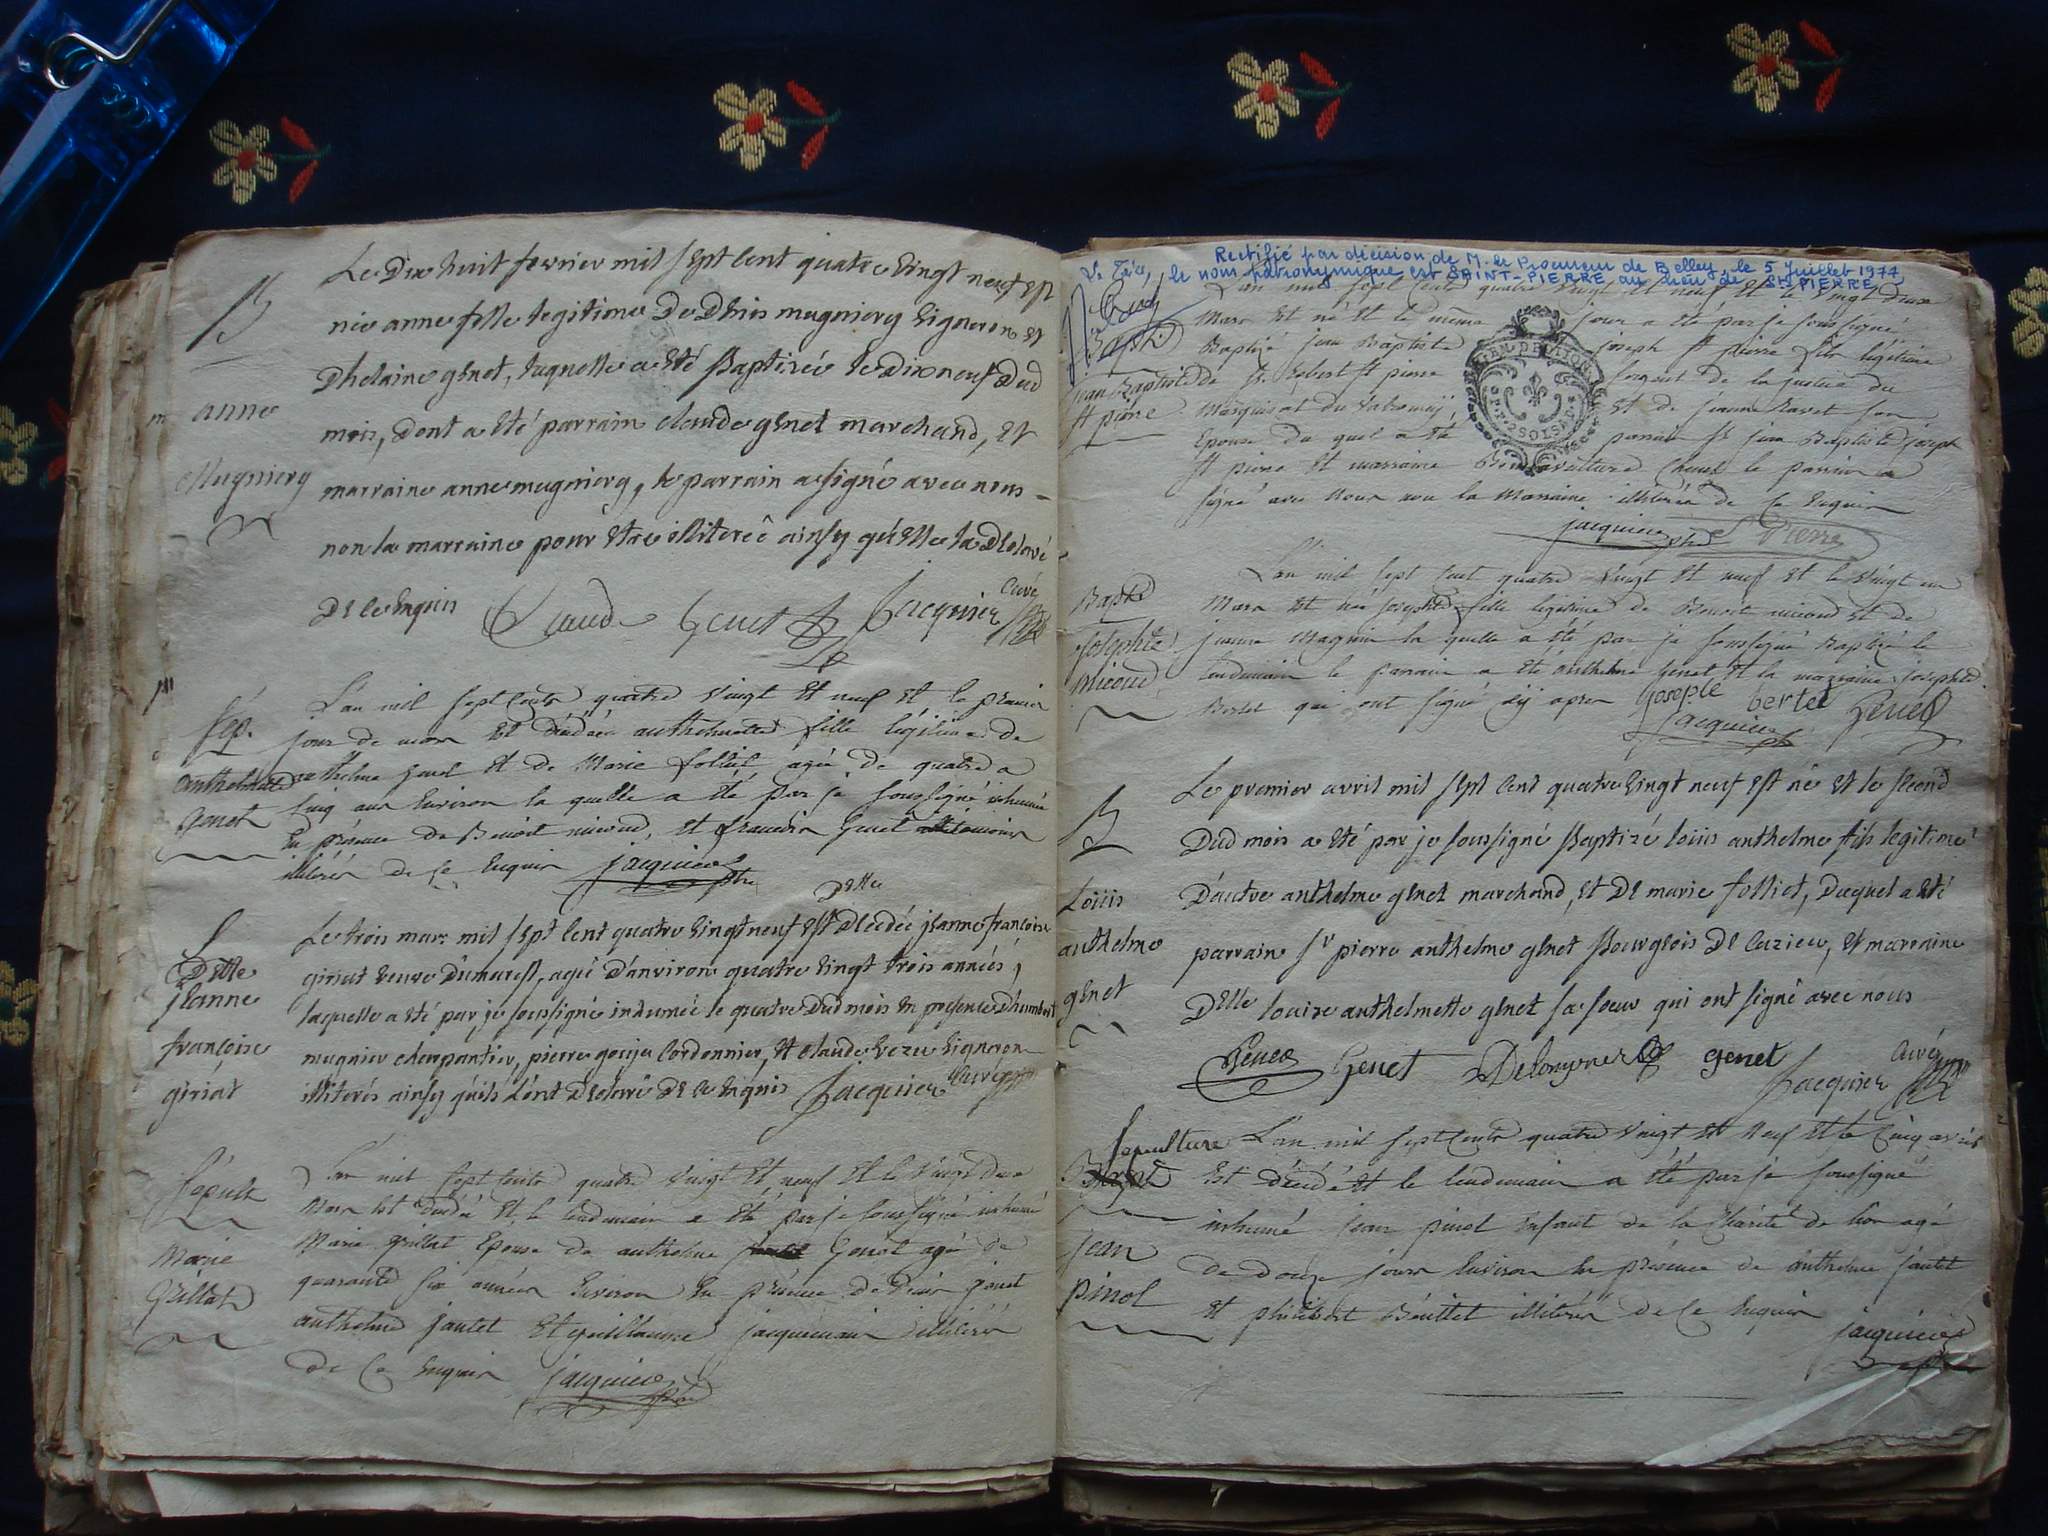 B
anne
Mugniery
Le Dix huit fevrier mil sept cent quatre vingt neuf est
née anne fille legitime De Denis mugniery vigneron et
Dhelaine genet, laquelle a été Baptizée le Dix neuf dud
mois, dont a été parrain claude genet marchand, et
marraine anne mugniery, le parrain a signé avec nous
non la marraine pour etre illiterée ainsy qu'elle la Declaré
De ce enquis Claude Genet Jacquier Curé
Sep.
anthelmette
Genet
L'an mil sept cents quatre vingt et neuf et le premier
jour de mars est décédée anthelmette fille légitime de
anthelme genet et de Marie folliet agée de quatre a
cinq ans environ la quelle a été par je soussigné inhumée
en présence de Benoit micoud, et francois Genet
illiterés de ce enquis jacquier ptre
S
Delle
jeanne
francoise
giriat
Delle
Le trois mars mil sept cent quatre vingt neuf est Decedée jeanne francoise
giriat veuve Dumarest, agée d'anviron quatre vingt trois années,
laquelle a été par je soussigné inhumée le quatre Dud mois en presence Dhumbert
mugnier charpantier, pierre gouju Cordonnier, et claude vezu vigneron
illiterés ainsy quéils l'ont Declaré De ce enquis Jacquier Curé
Sépult
Marie
Grillat
L'an mil sept cents quatre vingt et neuf et le vingt deux
Mars est décédée et le lendemain a été par je soussigné inhumé
Marie grillat Epouse de anthelme Genet agé de
quarante six années environ en présence de Denis janet
anthelme jantet et guillaume jacquemain illiterés
de ce enquis jacquier ptre
Rectifié par décision de M. le Procureur de Belley, le 5 Juillet 1977,
le nom patronymique est SAINT-PIERRE au lieu de St PIERRE
Bapt.
Jean Baptiste
st pierre
L'an mil sept cents quatre vingt et neuf et le vingt deux
Mars est né et le même jour a été par je soussigné
Baptizé jean Baptiste joseph st pierre fils légitime
de Sr. Robert st pierre sergent de la justice du
Marquisat du Valromey, et de jeanne Ravet son
Epouse du quel a été parrain Sr jean Baptiste joseph
st pierre et marraine Bonnaventure le parrain a
signé avec nous non la Marraine illiterée de ce enquis
jacquier ptre St Pierre
GEN. DE DIJON
2 SOLS
Bapte
Josephte
Micoud
L'an mil sept cent quatre vingt et neuf et le vingt un
Mars est née josephte fille légitime de Benoit micoud et de
jeanne Magnin la quelle a été par je soussigné Baptizé le
lendemain le parrain a été anthelme Genet et la marraine josephte
Bertet qui ont signé cy apres josephe bertet Genet
Jacquier
B
Louis
anthelme
genet
Le premier avril mil sept cent quatre vingt neuf est né et le second
Dud mois a été par je soussigné Baptizé louis anthelme fils legitime
D'autre anthelme genet marchand, et De marie folliet, Duquel a été
parrain sr pierre anthelme genet Bourgeois De Cuzieu, et marraine
Delle louise anthelmette genet sa soeur qui ont signé avec nous
Genet Genet genet Jacquier Curé
Sepulture
jean
pinol
L'an mil sept cents quatre vingt et neuf et le cinq avril
Est décédé et le lendemain a été par je soussigné
inhumé jean pinol enfant de la Charité de lion agé
de douze jours environ en présence de anthelme jantet
et philibert illiterés de ce enquis
jacquier